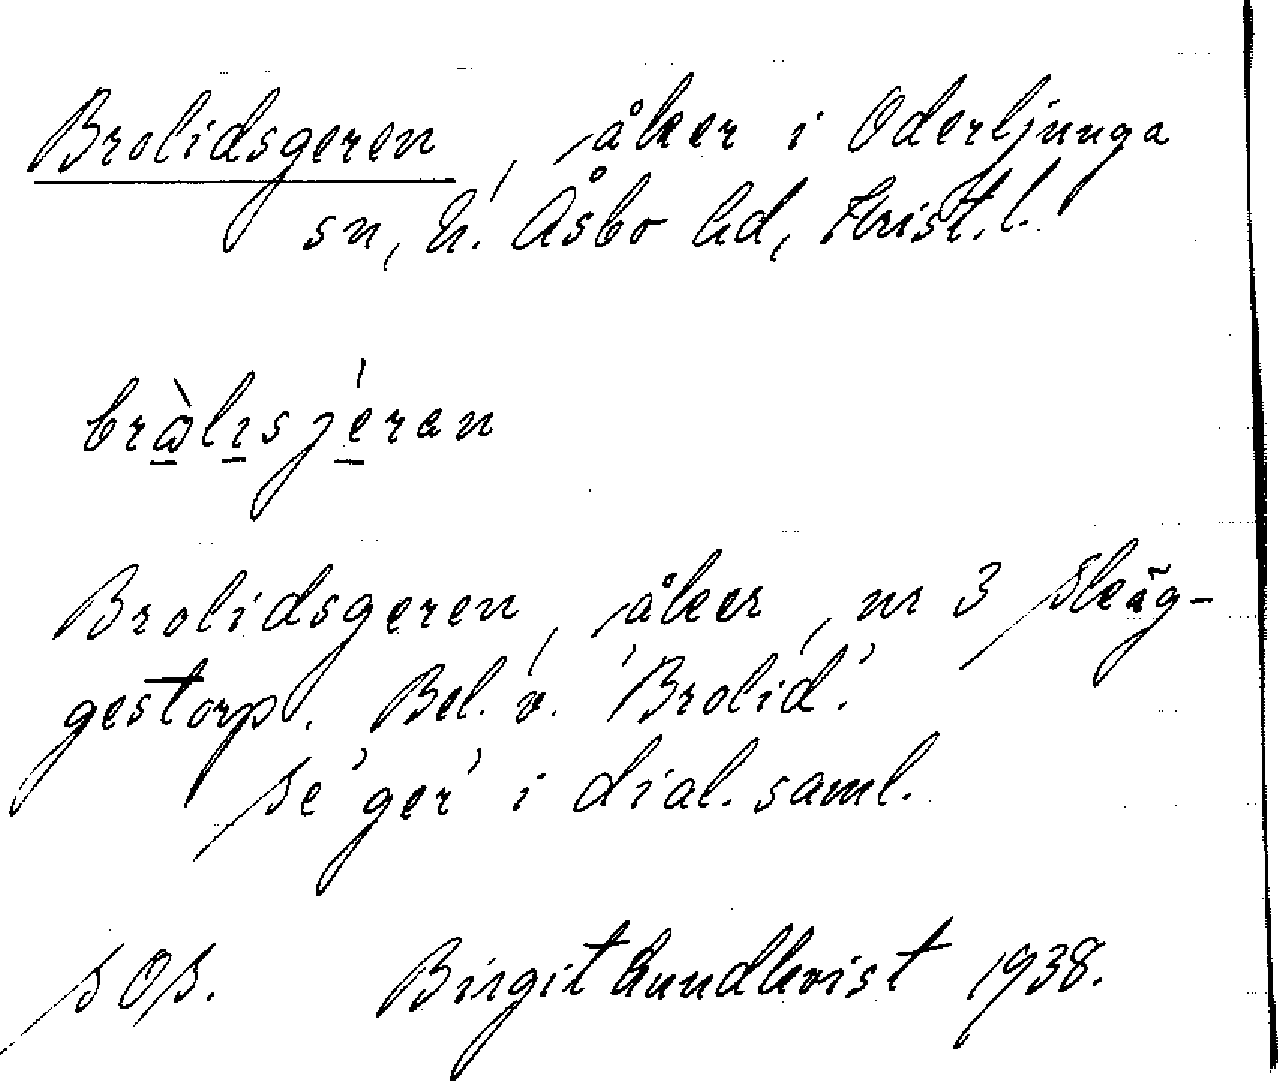 Brolidsgeren, åker i Oderljunga
sn, N. Åsbo hd, Krist. l.
bràlısjéran
Brolidsgeren, åker, nr 3 Skäg-
gestorp. Bel. v. 'Brolid'.
Se 'ger' i dial. saml.
SOS. Birgit Lundkvist 1938.